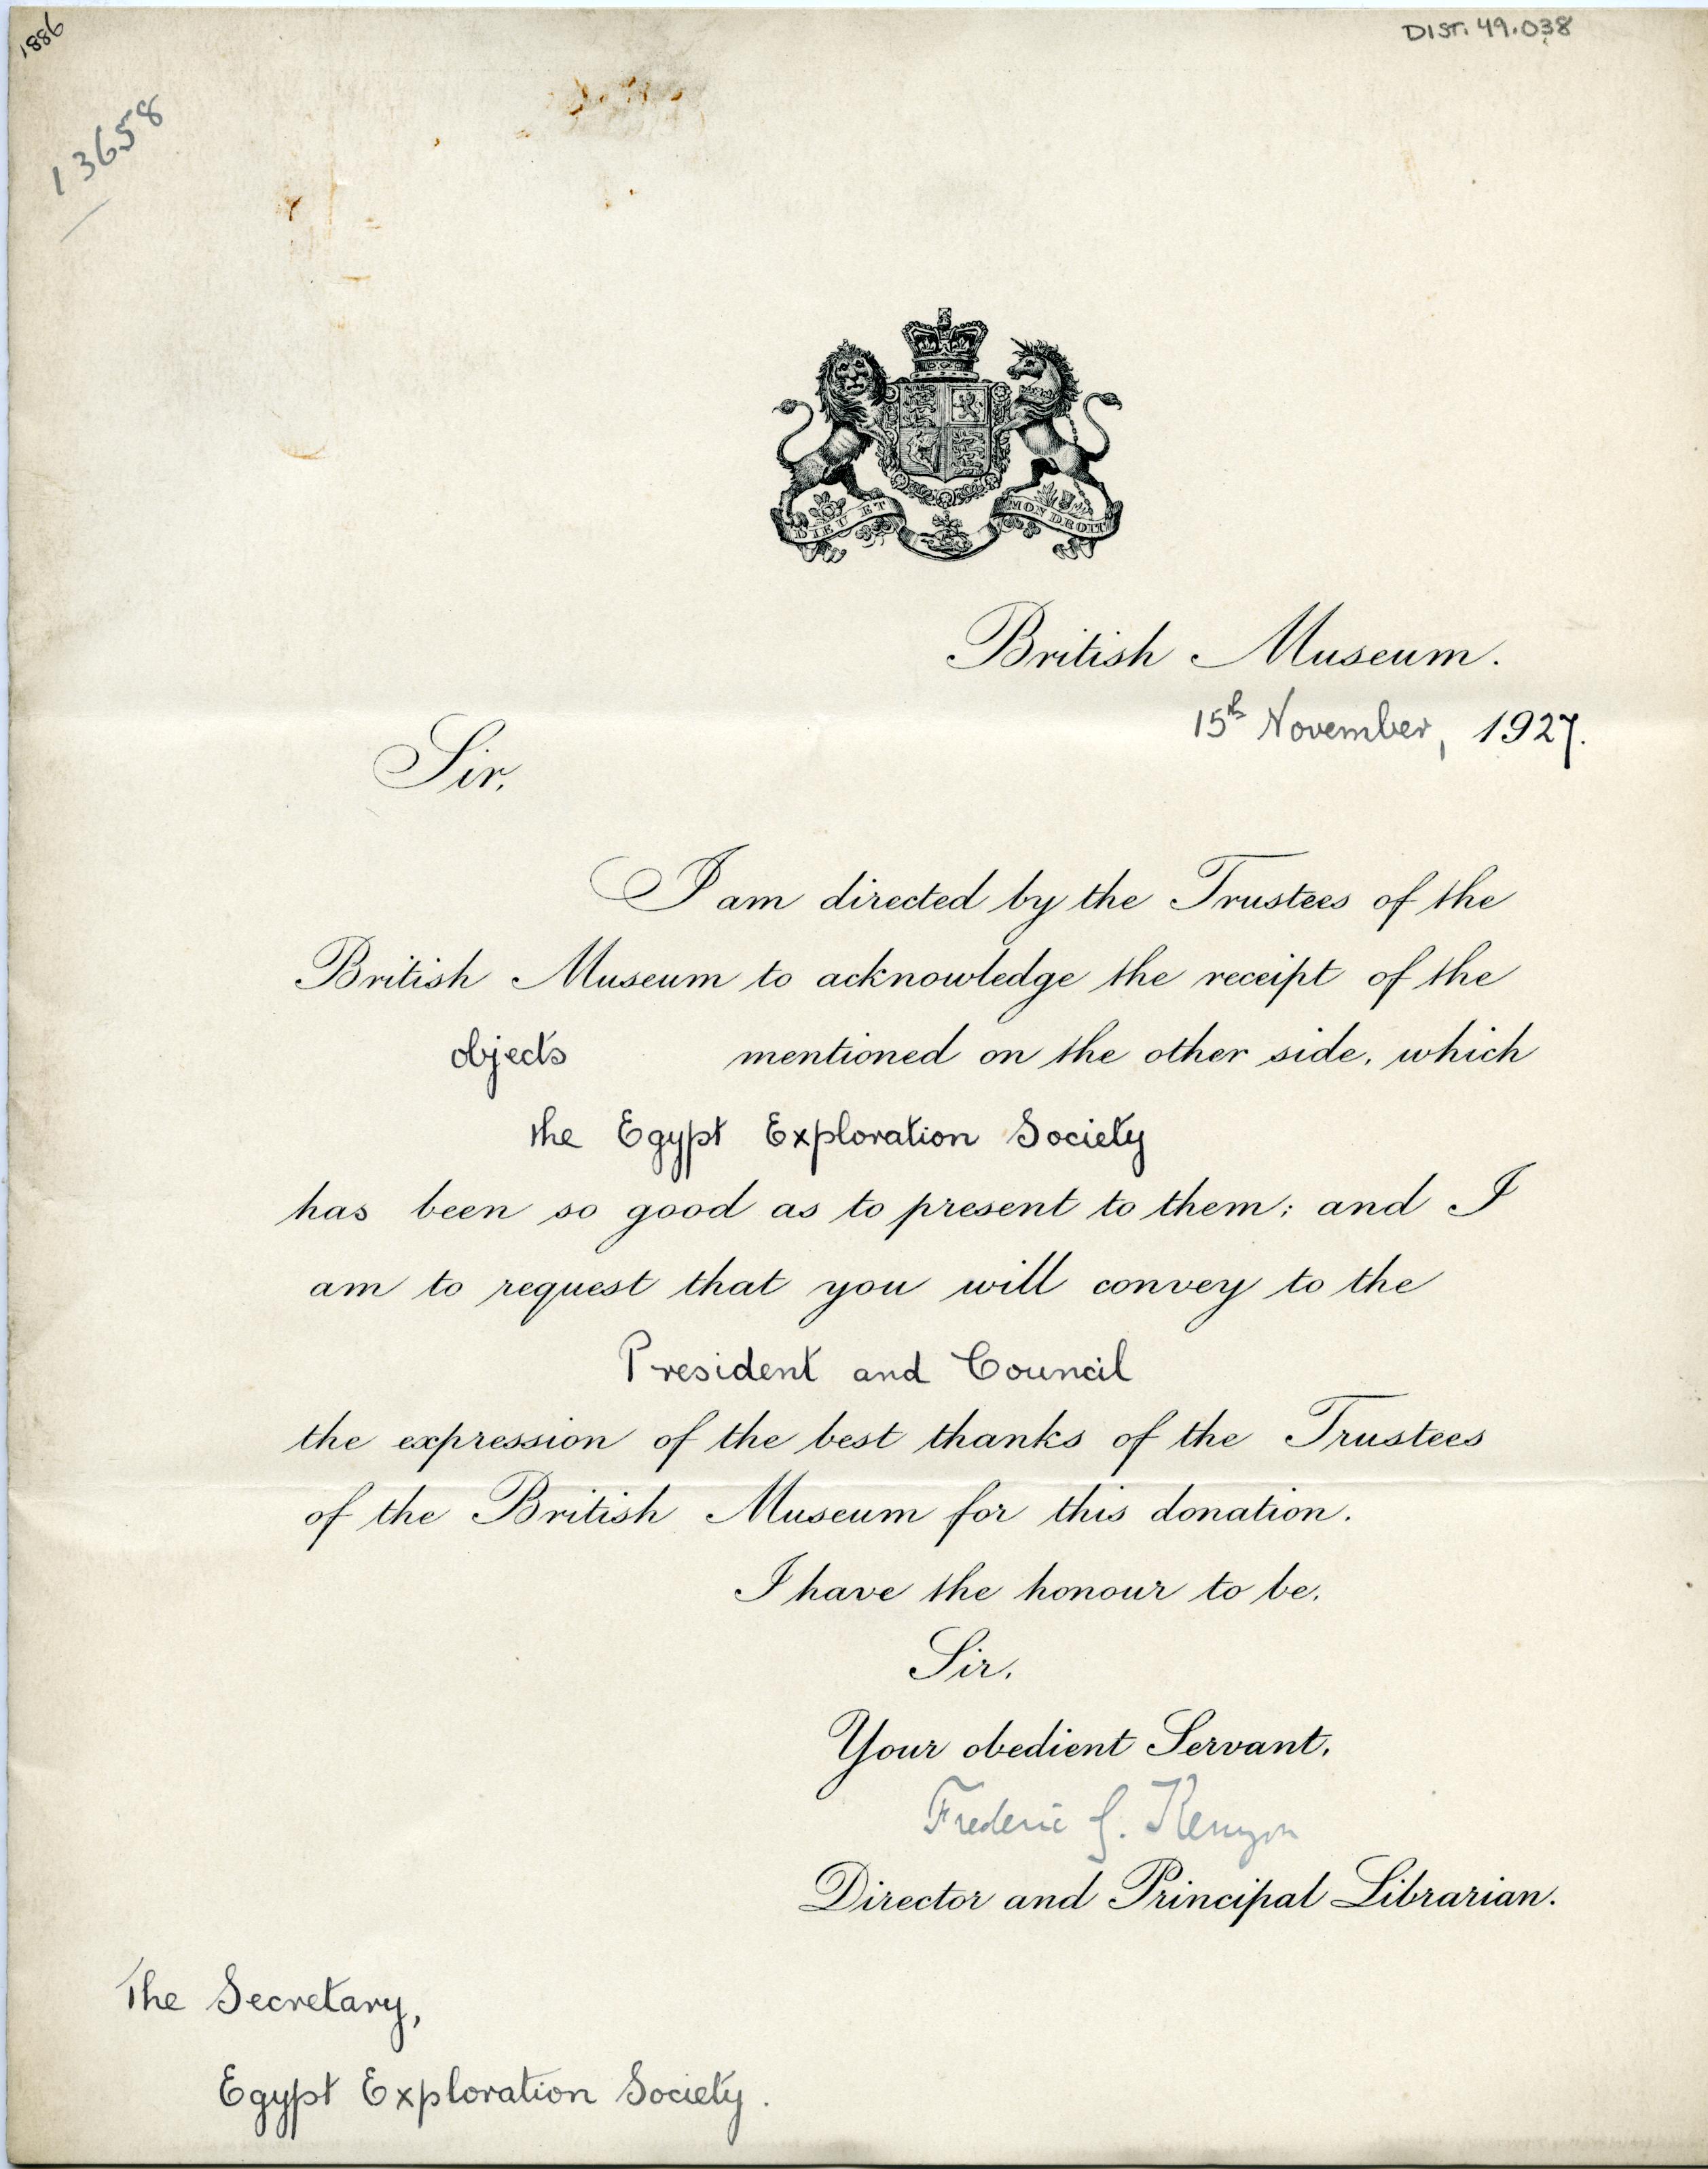 1886
DIST. 49.038
13658
DIEU ET MON DROIT
British Museum.
15th November, 1927.
Sir,
I am directed by the Trustees of the
British Museum to acknowledge the receipt of the
objects mentioned on the other side, which
the Egypt Exploration Society
has been so good as to present to them; and I
am to request that you will convey to the
President and Council
the expression of the best thanks of the Trustees
of the British Museum for this donation.
I have the honour to be,
Sir,
Your obedient Servant,
Frederic G. Kenyon
Director and Principal Librarian.
The Secretary,
Egypt Exploration Society.